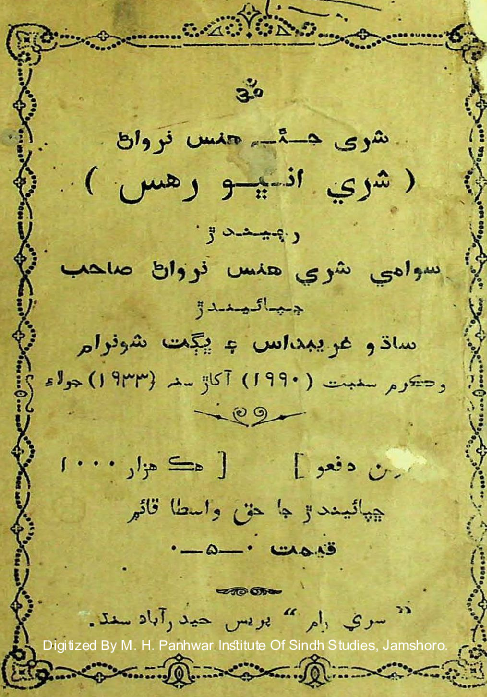 ॐ
شري هنس نرواڻ
( شري انڀو رهس )
رچيندڙ
سوامي شري هنس نرواڻ صاحب
ڇپائيندڙ
ساڌو غريبداس ۽ ڀڳت شونرام
وڪرم سمبت (۱۹۹۰) آکاڙ سنه (۱۹۳۳) جولاءِ
دفعو ] [ هڪ هزار ۱۰۰۰
ڇپائيندڙ جا حق واسطا قائم
قيمت ۰—۵—۰
”سري رام“ پريس حيدرآباد سنڌ.
Digitized By M. H. Panhwar Institute Of Sindh Studies, Jamshoro.